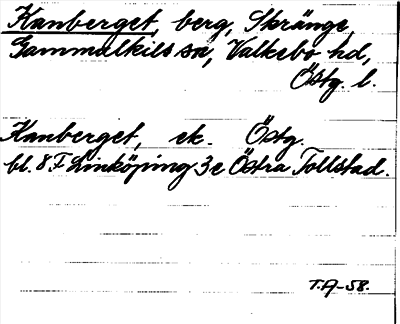 Kanberget, berg, Skränge,
Gammalkils sn, Valkebo hd,
Östg. l.
Kanberget, ek. Östg.
bl. 8 F Linköping 3e Östra Tollstad.
T.A-58.